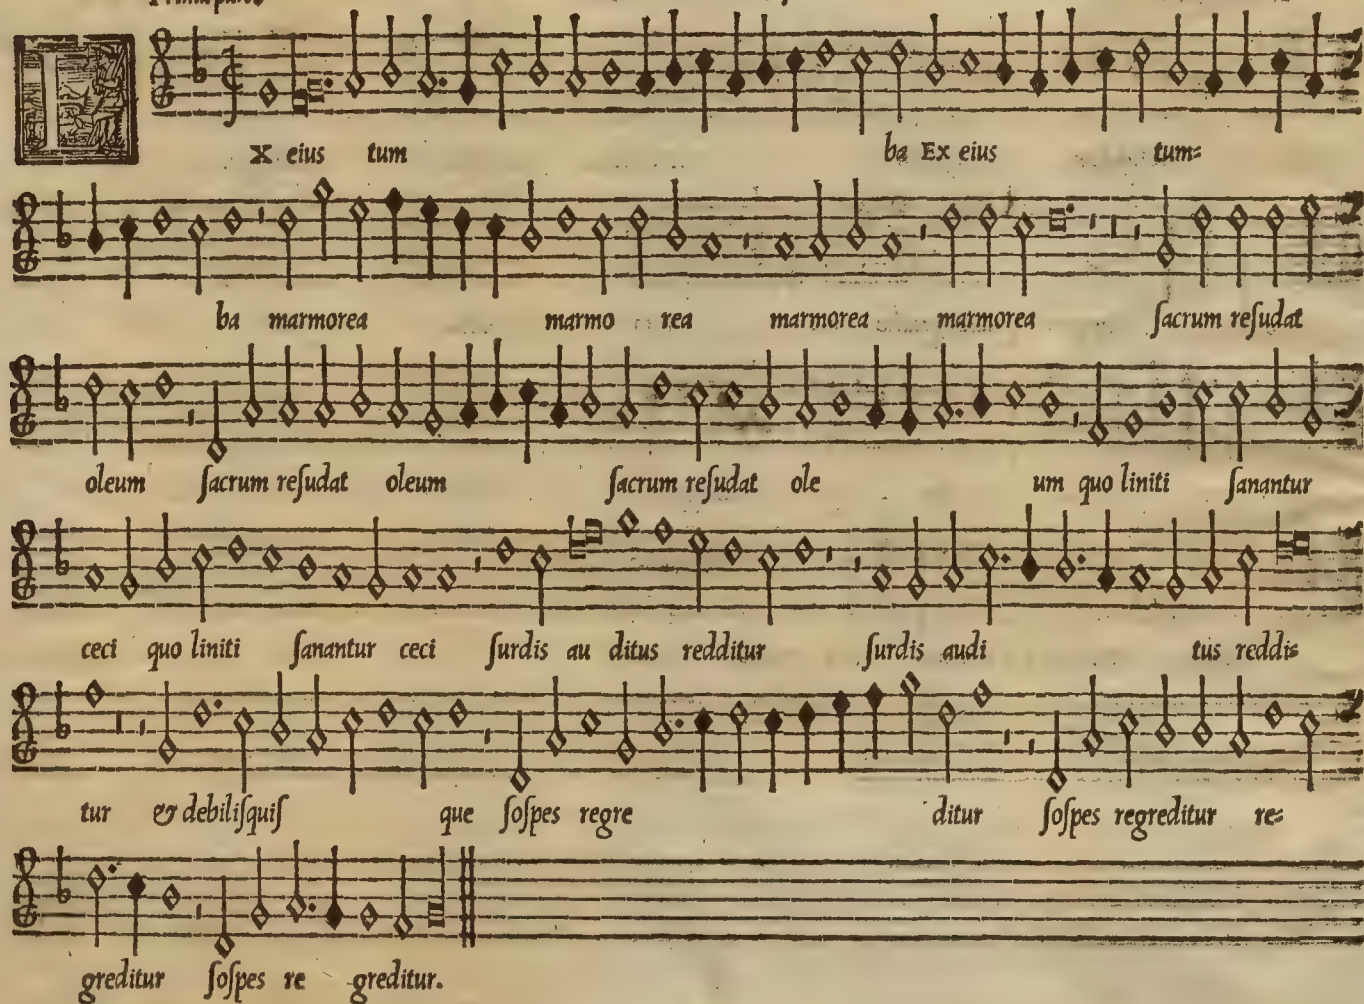 Prima pars
I X eius tum ba Ex eius tum=
ba marmorea marmo rea marmorea marmorea ſacrum reſudat
oleum ſacrum reſudat oleum ſacrum reſudat ole um quo liniti ſanantur
ceci quo liniti ſanantur ceci ſurdis au ditus redditur ſurdis audi tus reddi=
tur & debiliſquiſ que ſoſpes regre ditur ſoſpes regreditur re=
greditur ſoſpes re greditur.